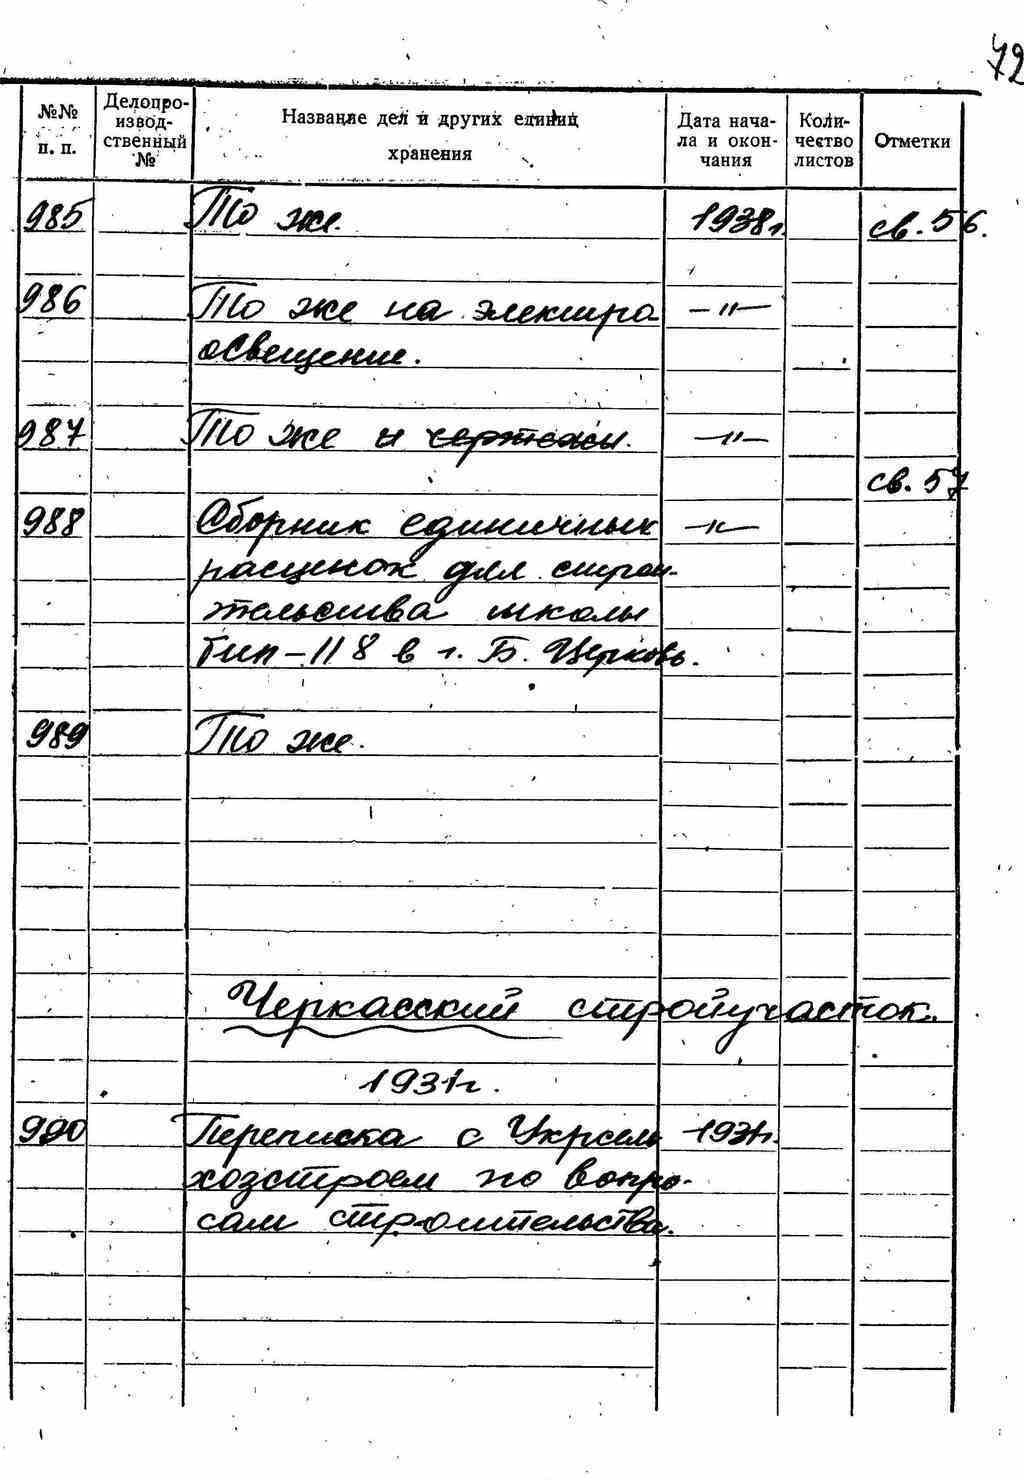 72
№№ п. п.
Делопро-извод-ственный №
Название дел и других единиц хранения
Дата нача-ла и окон-чания
Коли-чество листов
Отметки
985 То же. 1938г. св. 56.
986 То же на электро -"-
освещение.
987 То же и чертежи. -"-
св. 57
988 Сборник единичных -"-
расценок для строи-
тельства школы
тип-118 в г. Б. Церковь.
989 То же.
Черкасский стройучасток.
1931г.
990 Переписка с Укрсель 1931г.
хозстроем по вопро-
сам строительства.